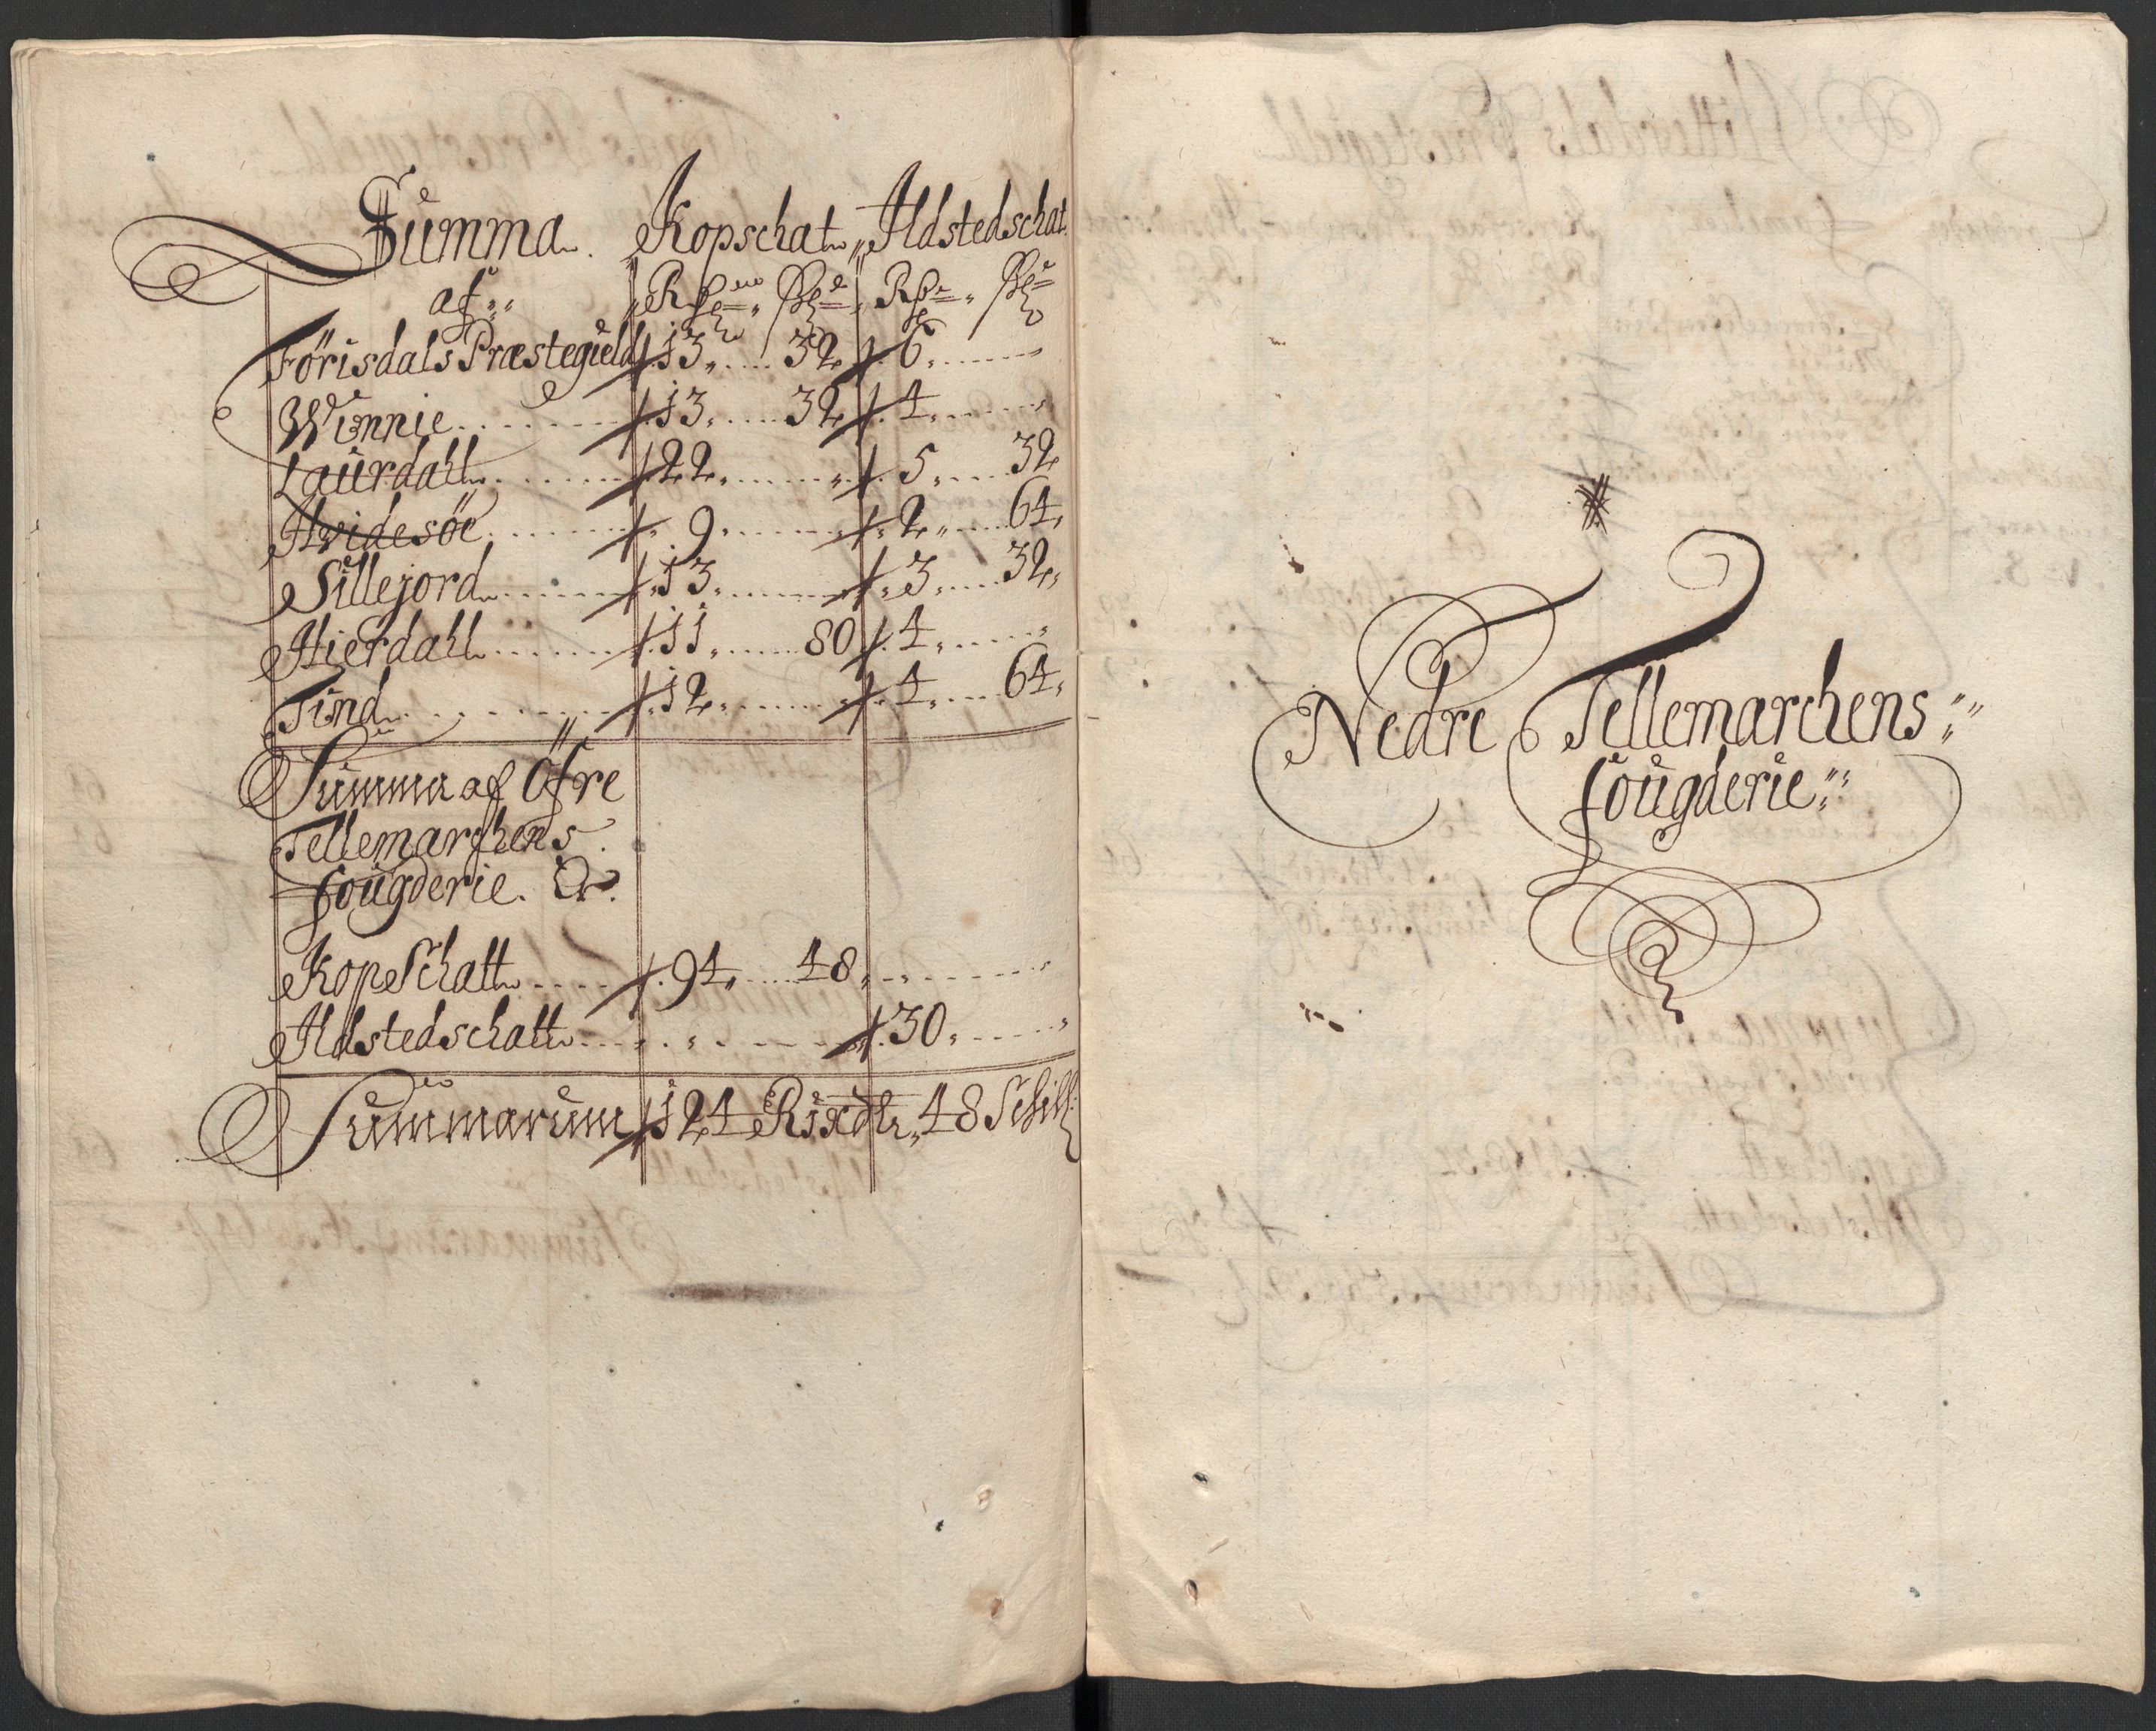 Summa. Kopschat Ildstedschat.
af Rdr ß Rdr ß
Förisdals Præstegield 13. 32 6.
Winnie 13. 32 4.
Laurdall 22. 5. 32
Hvidesöe 9. 2. 64.
Sillejord 13. 3. 32.
Hierdall 11. 80 4.
Tind 12. 4. 64.
Summa af Öfre
Tellemarchens
fougderie. Er.
KopeSchatt 94. 48.
Ildstedschatt 30.
Summarum 124 Rixdlr. 48 Schill:
Nedre Tellemarchens
fougderie